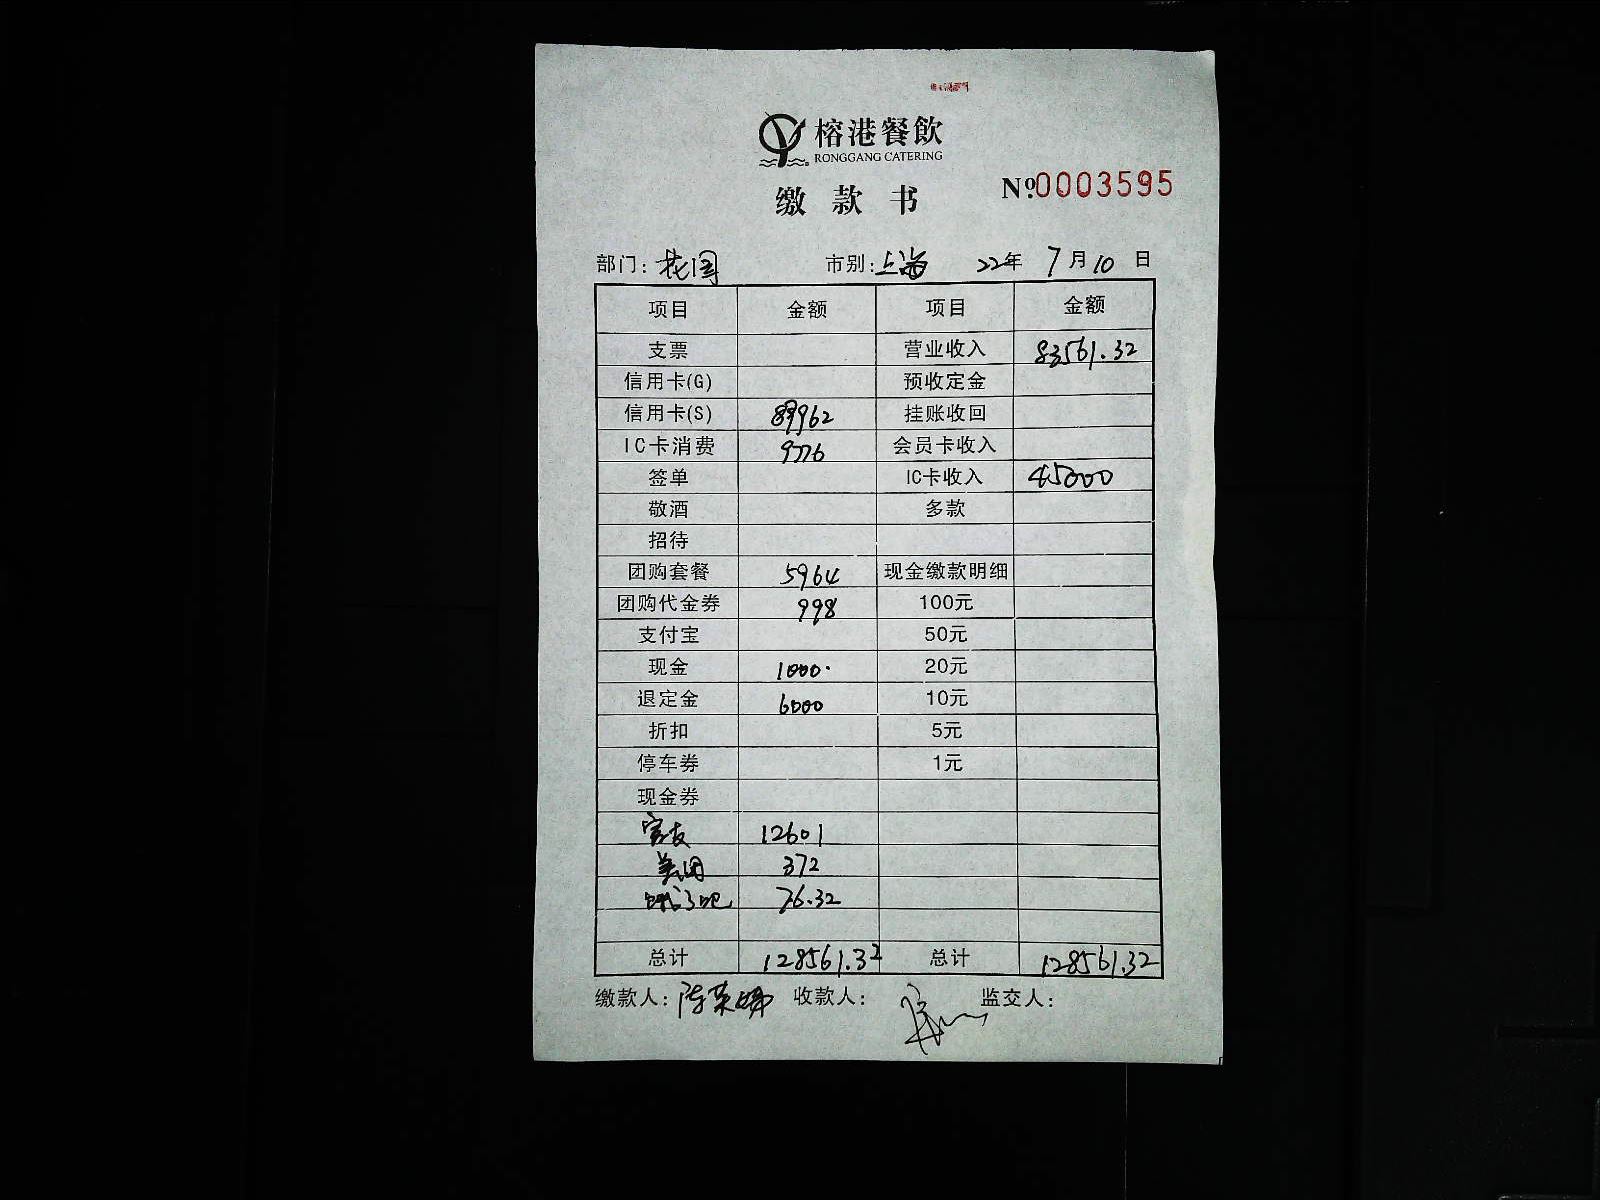 榕港餐飲
RONGGANG CATERING
缴款书
№0003595
部门: 花园 市别: 上海 22年 7月10日
项目 金额 项目 金额
支票 营业收入 83561.32
信用卡(G) 预收定金
信用卡(S) 89962 挂账收回
IC卡消费 9776 会员卡收入
签单 IC卡收入 45000
敬酒 多款
招待
团购套餐 5964 现金缴款明细
团购代金券 998 100元
支付宝 50元
现金 1000. 20元
退定金 6000 10元
折扣 5元
停车券 1元
现金券
12601
美团 372
饿了吧 76.32
总计 128561.32 总计 128561.32
缴款人: 陈 收款人: 监交人: